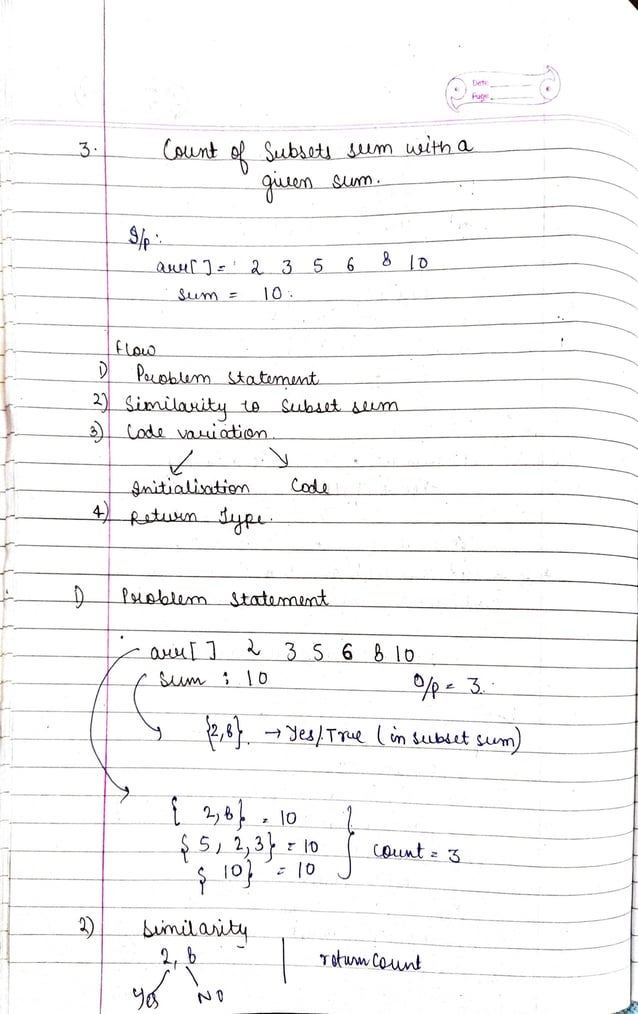 Date
Page
3. Count of Subsets sum with a
given sum.
I/p:
arr[] = 2 3 5 6 8 10
sum = 10.
Flow
1) Problem statement
2) Similarity to Subset sum
3) Code variation.
Initialisation Code
4) Return Type.
1) Problem statement
arr[] 2 3 5 6 8 10
sum : 10 O/p = 3.
{2,8}. → Yes/True (in subset sum)
{ 2,8} = 10
{ 5, 2,3} = 10 count = 3
{ 10} = 10
2) Similarity
2, 8 return count
Yes NO